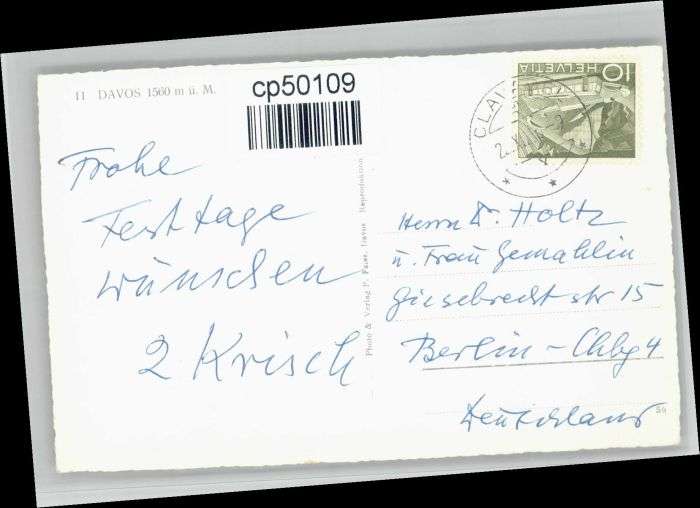 11 DAVOS 1560 m ü. M.
cp50109
10
HELVETIA
Frohe
Festtage
wünschen
2 Krisch
Photo & Verlag P. Davos Reproduktion
Herrn Dr. Holtz
u. Frau Gemahlin
Giesebrecht str 15
Berlin - Chbg 4
Deutschland